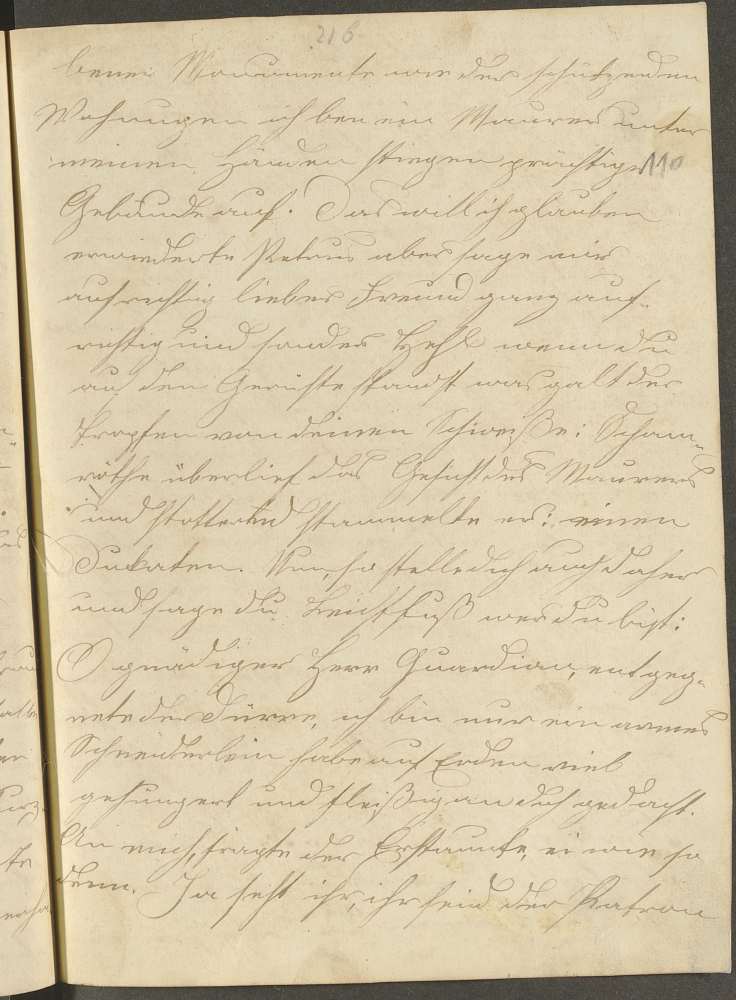 216
benen Monumente wie der schützenden
Wohnungen ich ben ein Maurer unter
meinen Händen stiegen prächtige
110
Gebäude auf. Das will ich glauben
erwiederte Petrus aber sage mir
aufrichtig lieber Freund ganz auf-
richtig und sonder Hehl wenn du
auf dem Gerüste standst was galt der
Tropfen von deinem Schweiße: Scham-
röthe überlief das Gesicht des Maurers
und stotternd stammelte er: einen
Dukaten. Nun, so stelle dich auch daher
und sage du Leichtfuß wer du bist:
O gnädiger Herr Guardian, entgeg-
nete der Dürre, ich bin nur ein armes
Schneiderlein habe auf Erden viel
gehungert und fleißig an dich gedacht.
An mich, fragte der Erstaunte, ei wie so
denn. Ja seht ihr, ihr seid der Patron